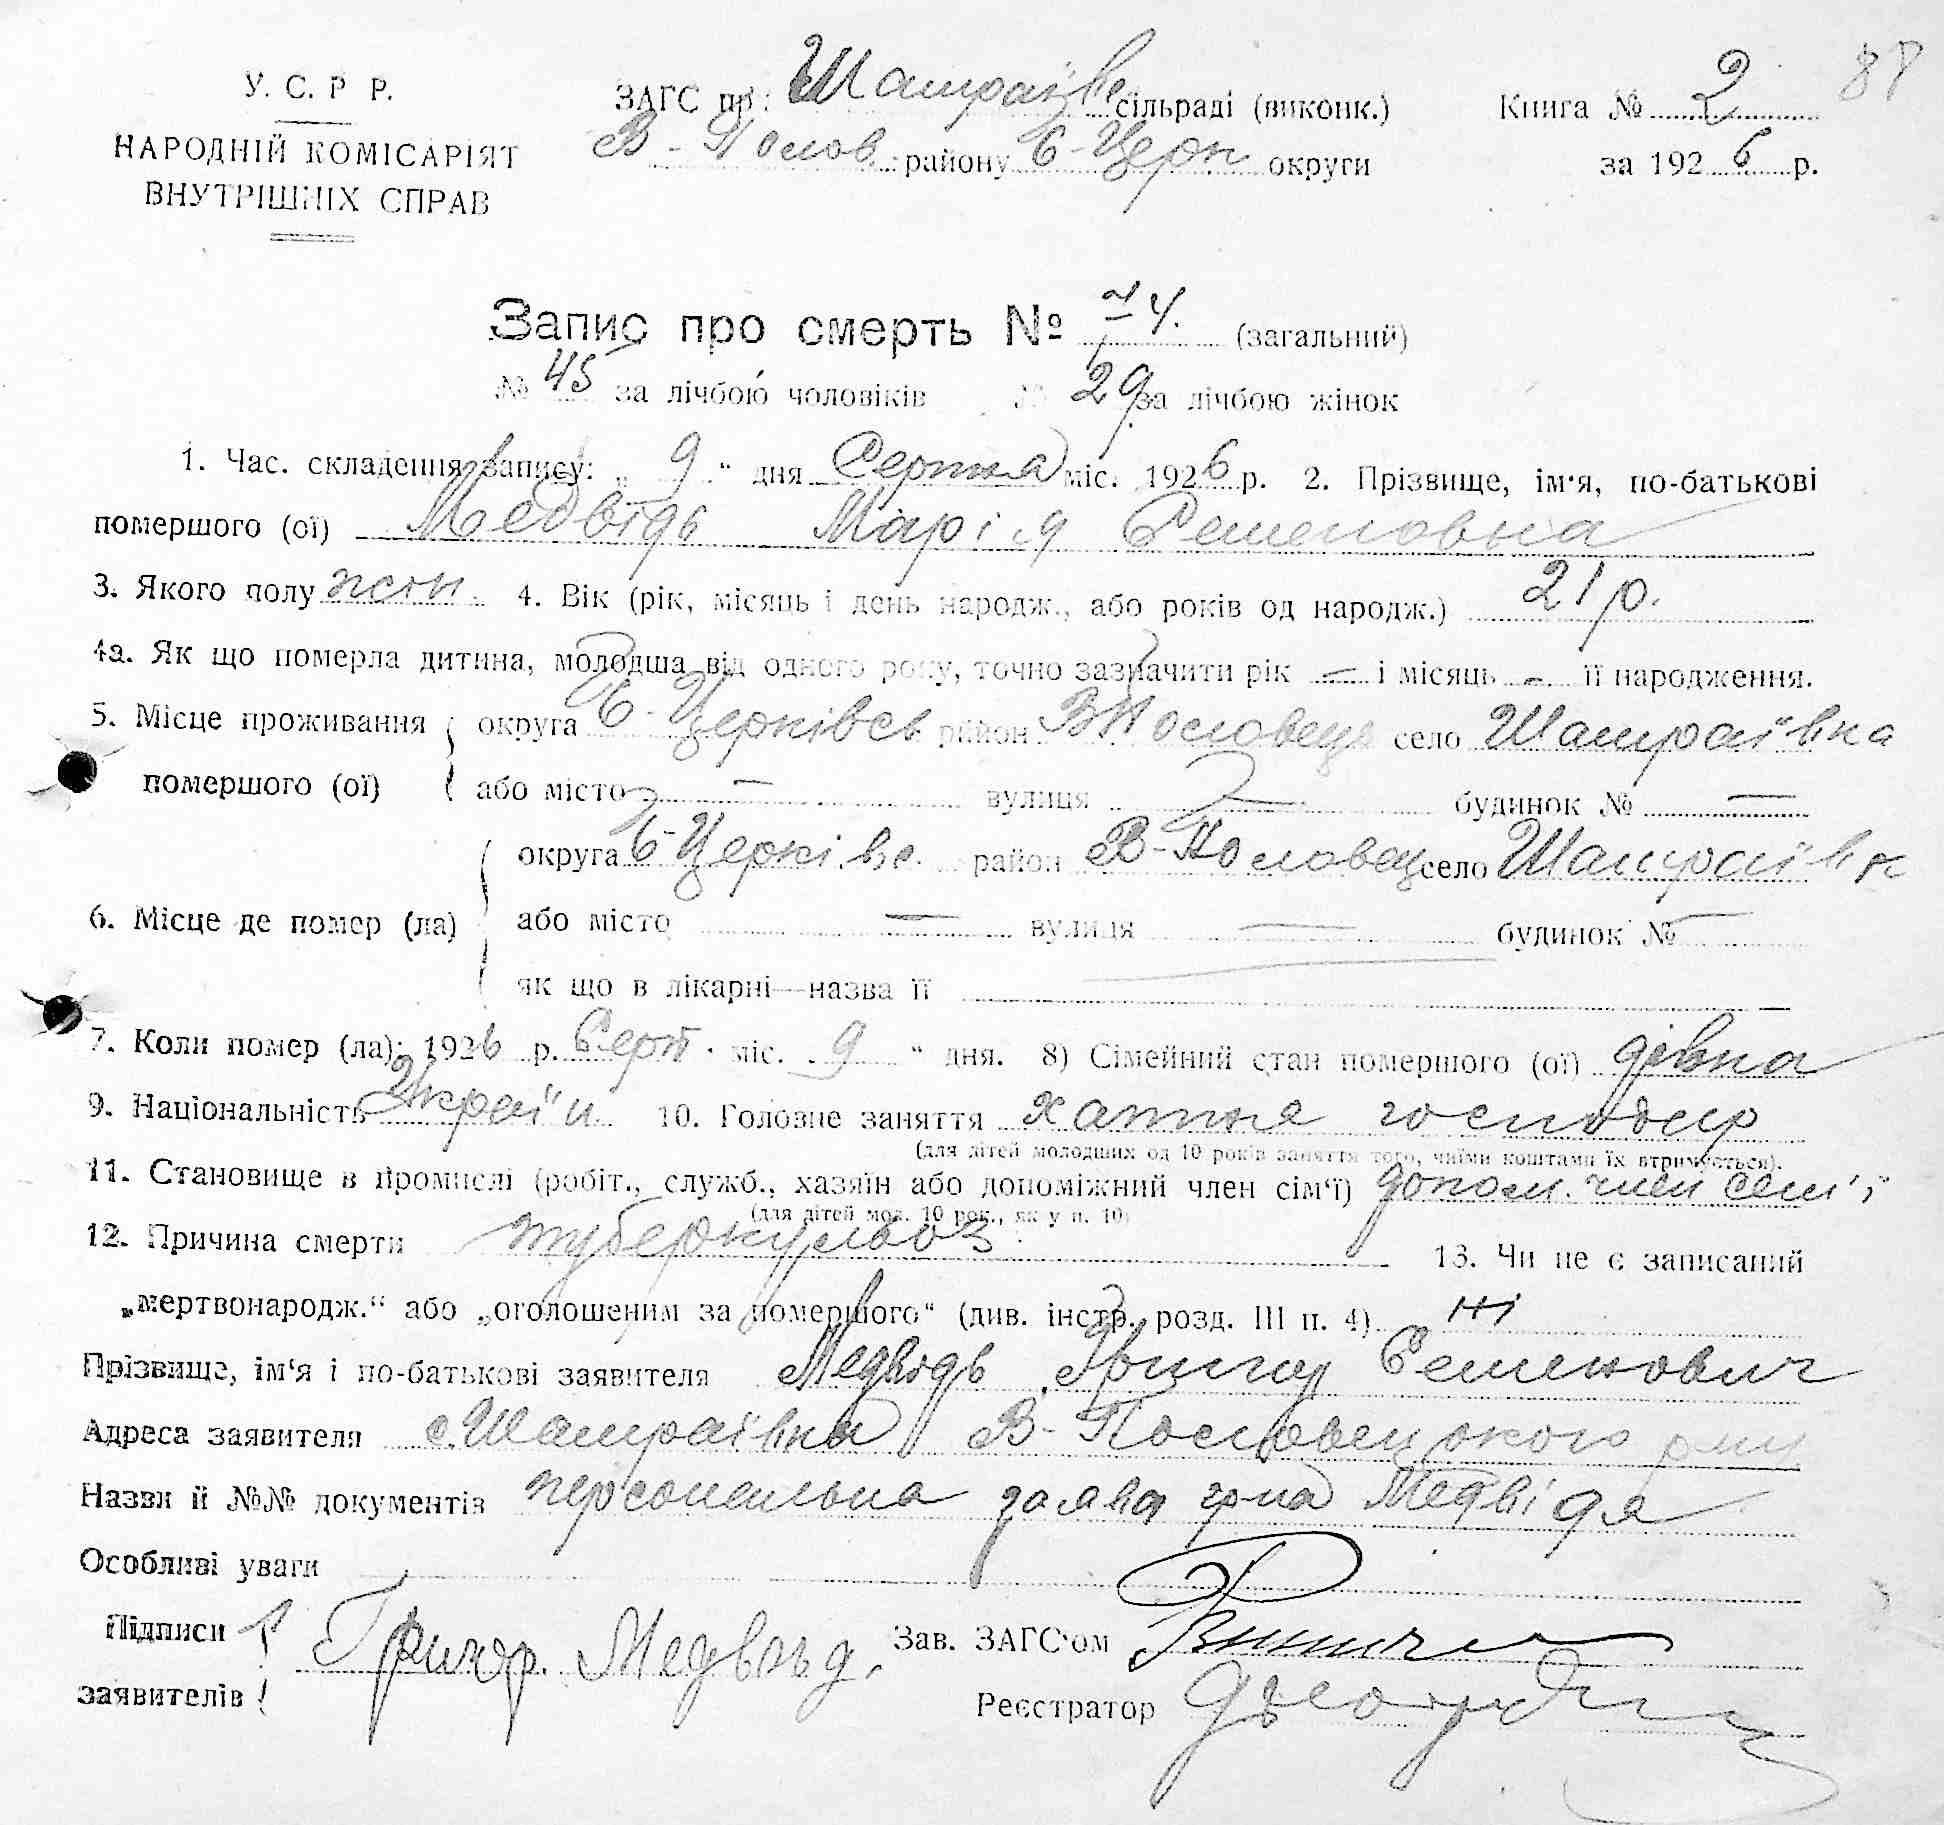 У. С. Р Р.
НАРОДНІЙ КОМІСАРІЯТ
ВНУТРІШНІХ СПРАВ
ЗАГС пр: Шамраївс сільраді (виконк.)
В-Полов. району Б-Церк округи
Книга № 2 88
за 1926 р.
Запис про смерть № 74. (загальний)
№ 45 за лічбою чоловіків № 29 за лічбою жінок
1. Час. складення запису: „ 9 “ дня Серпня міс. 1926 р. 2. Прізвище, ім‘я, по-батькові
помершого (ої) Медвідь Марія Семеновна
3. Якого полу жін. 4. Вік (рік, місяць і день народж., або років од народж.) 21 р.
4а. Як що померла дитина, молодша від одного року, точно зазначити рік — і місяць - її народження.
5. Місце проживання округа Б-Церківсь район В Половець село Шамраївка
помершого (ої) або місто — вулиця — будинок № —
округа Б-Церківс. район В-Половец село Шамраївк
6. Місце де помер (ла) або місто — вулиця — будинок № —
як що в лікарні—назва її —
7. Коли помер (ла): 1926 р. Серп. міс. 9 “ дня. 8) Сімейний стан помершого (ої) дівка
9. Національність Україн. 10. Головне заняття хатня господар
(для дітей молодших од 10 років заняття того, чиїми коштами їх втримується).
11. Становище в промислі (робіт., служб., хазяїн або допоміжний член сім‘ї) допом. член сем'ї
(для дітей мол. 10 рок., як у п. 10)
12. Причина смерти туберкульоз 13. Чи не є записаний
„мертвонародж.“ або „оголошеним за помершого“ (див. інстр. розд. III п. 4) ні
Прізвище, ім‘я і по-батькові заявителя Медвідь Григор Семенович
Адреса заявителя с. Шамраївка В-Половецького р-ну
Назви й №№ документів персональна заява гр-на Медвідя
Особливі уваги
Підписи Григор. Медвѣдь. Зав. ЗАГС‘ом
заявителів Реєстратор